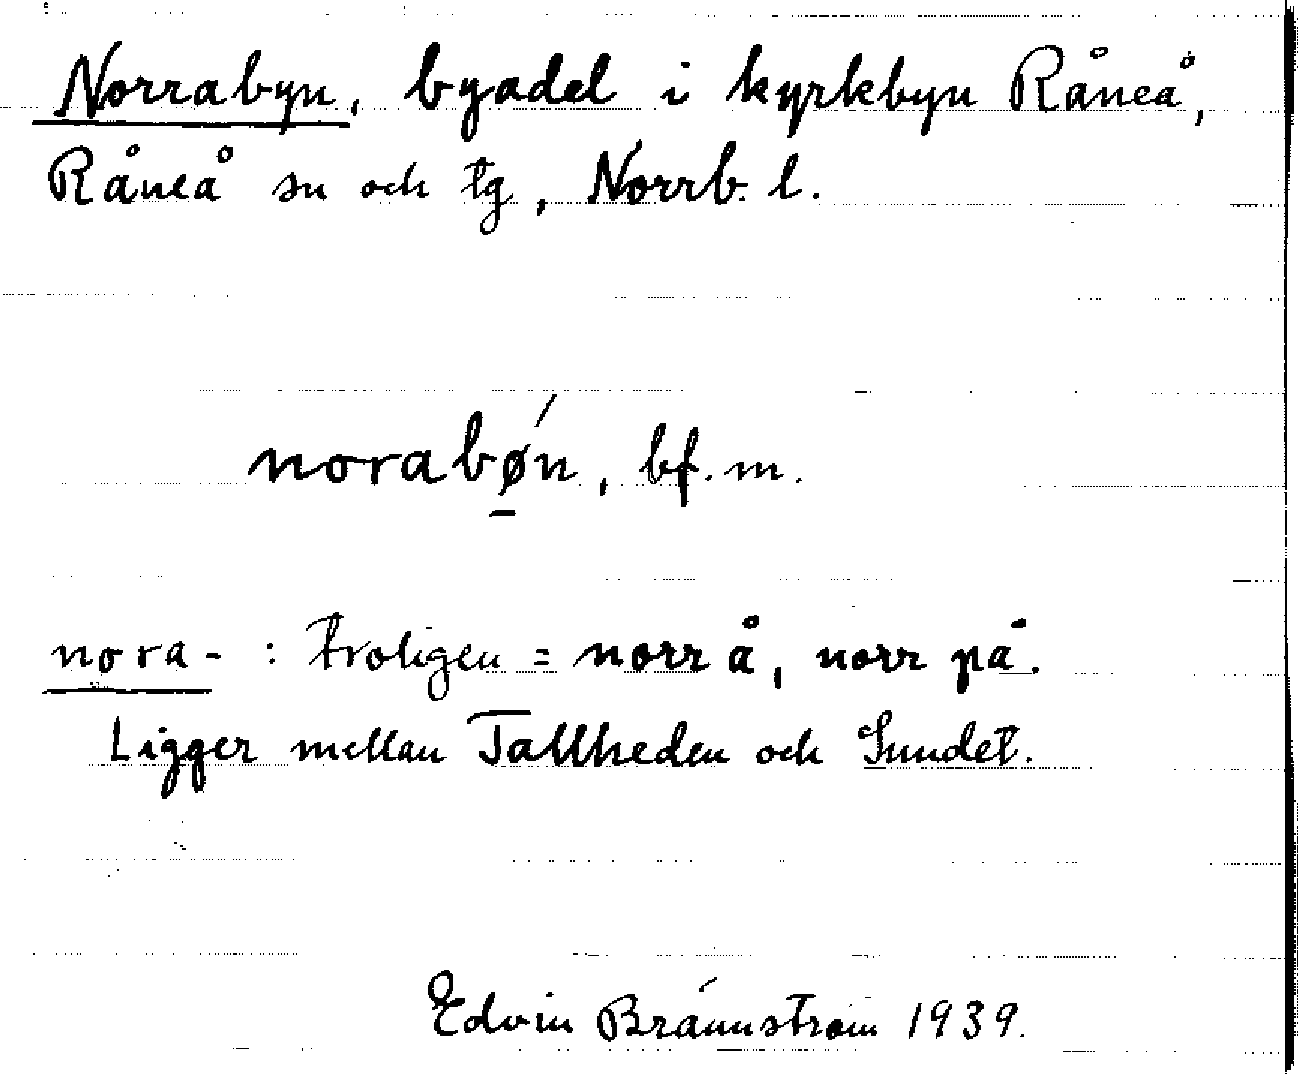 Norrabyn, byadel i kyrkbyn Råneå,
Råneå sn och tg, Norrb. l.
norabǿn, bf. m.
nora- : troligen = norr å, norr på.
Ligger mellan Tallheden och Sundet.
Edvin Brännström 1939.